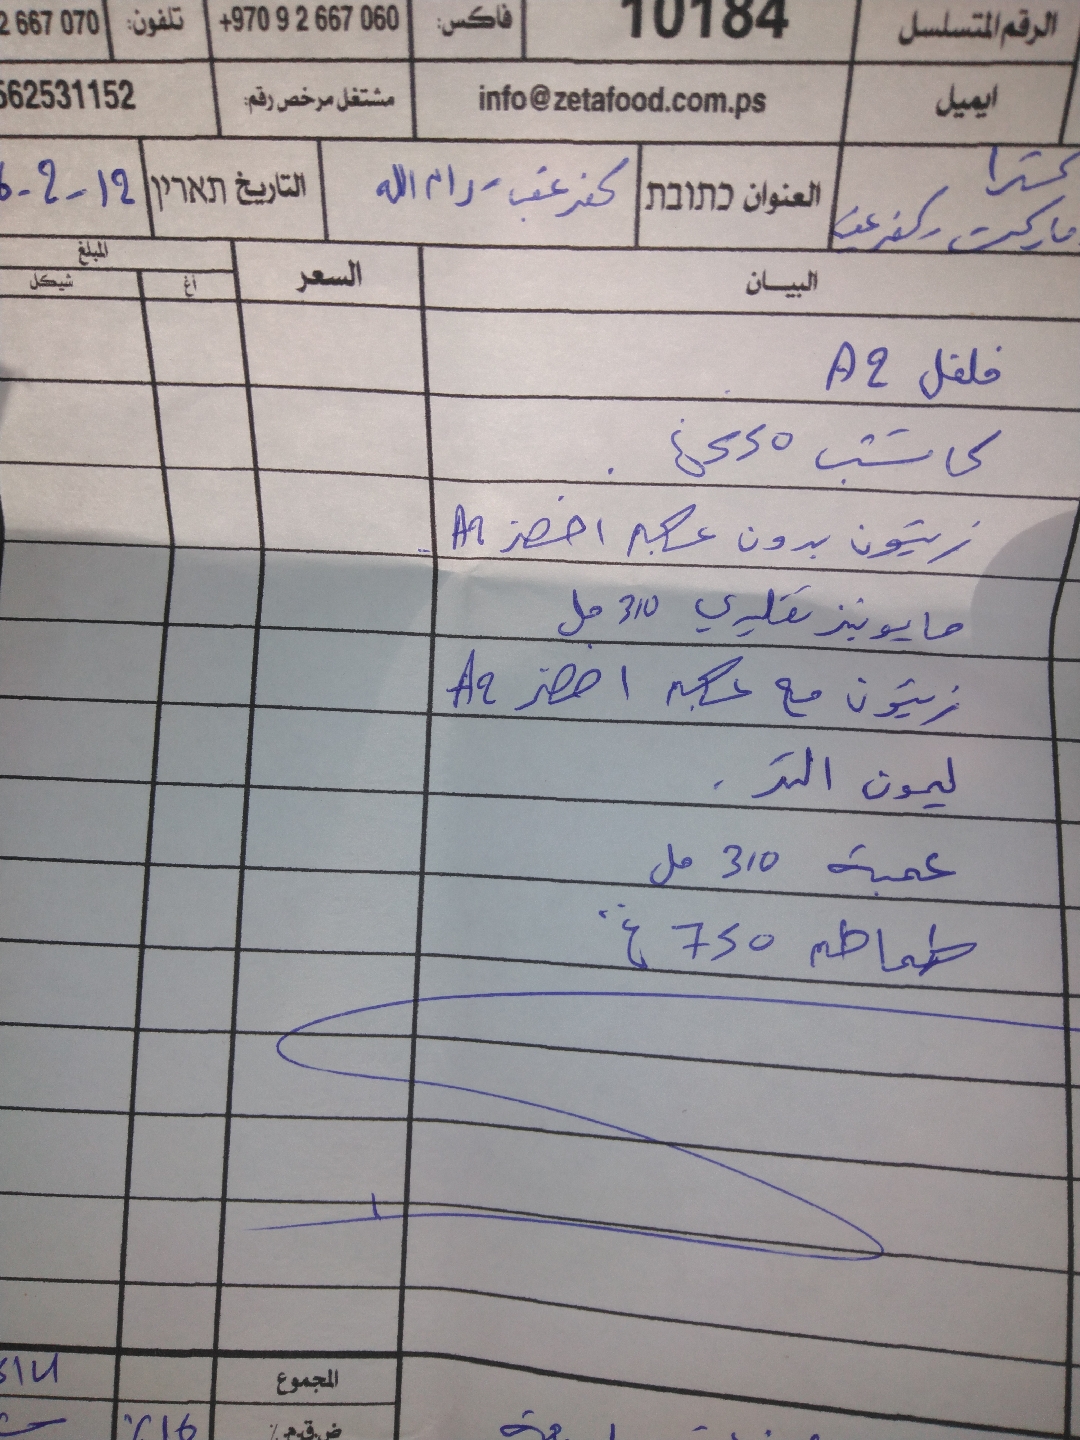 الرقم المتسلسل 10184 فاكس: +970 9 2 667 060 تلفون: 2 667 070
ايميل info@zetafood.com.ps مشتغل مرخص رقم: 562531152
ماركت كفر عقب العنوان כתובת كفر عقب - رام الله التاريخ תאריך 6-2-12
البيــان السعر المبلغ
أغ شيكل
فلفل A9
كاتشب
زيتون بدون عجم اخضر A9
مايونيز تقليدي 310 مل
زيتون مع عجم اخضر A9
ليمون
عمبة 310 مل
طماطم 750 غ
المجموع
ض.ق.م.٪ 16٪